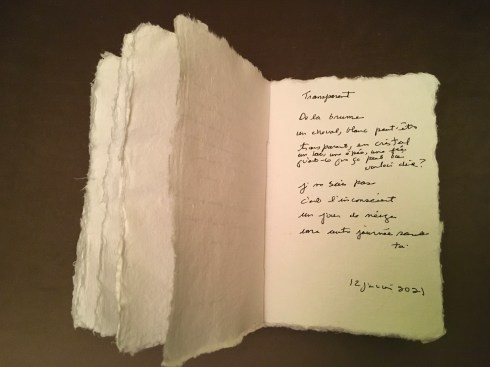 Transparent
De la brume
un cheval, blanc peut-être
transparent, en cristal
un une épée, une fée
qu'est-ce que ça peut bien
vouloir dire?
je ne sais pas
c'est l'inconscient
un jour de neige
une autre journée sans
toi
12 2021